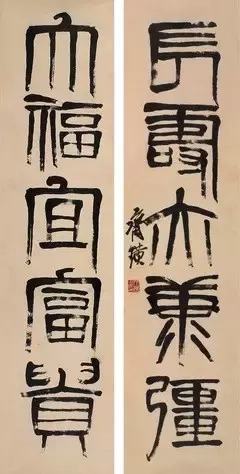 長壽亦康彊
齊璜
大福宜富貴